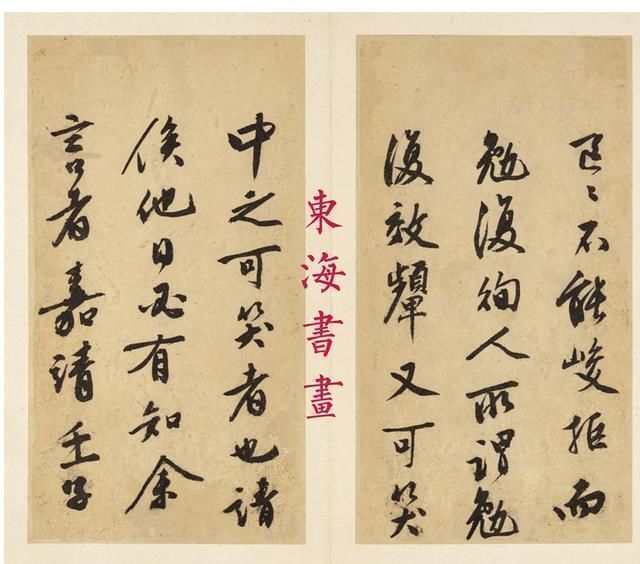 區〻不能峻拒而
勉復徇人所謂勉
復效顰又可笑
中之可笑者也請
俟他日必有知余
言者嘉靖壬子
東海書畫